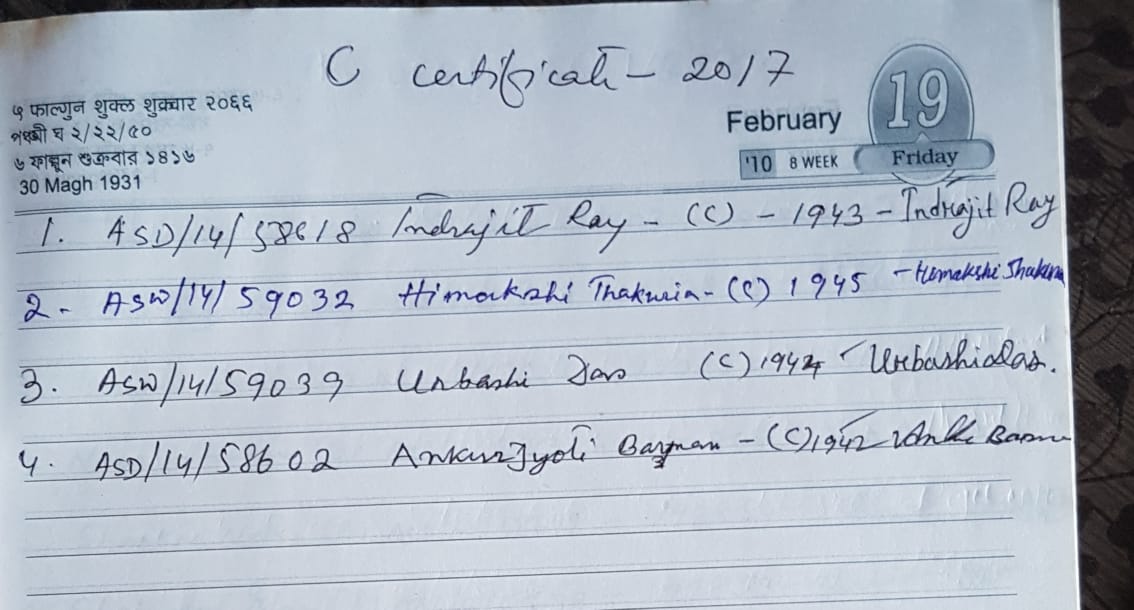 C certificate - 2017
५ फाल्गुन शुक्ल शुक्रवार २०६६
पञ्चमी घ २/२२/५०
৬ ফাল্গুন শুক্রবার ১৪১৬
30 Magh 1931
February 19
'10 8 WEEK Friday
1. ASD/14/58618 Indrajit Ray - (C) - 1943 - Indrajit Ray
2. ASW/14/59032 Himakshi Thakuria - (C) 1945 - Himakshi Thakuria
3. ASW/14/59039 Urbashi Das (C) 1944 - Urbashi das.
4. ASD/14/58602 Ankur Jyoti Barman - (C) 1942